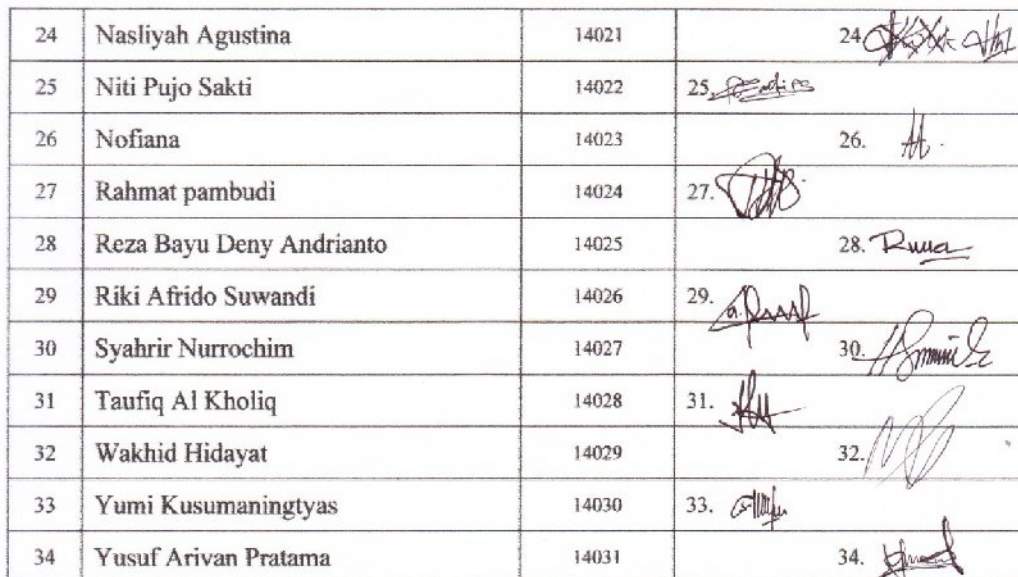 24 Nasliyah Agustina 14021 24
25 Niti Pujo Sakti 14022 25.
26 Nofiana 14023 26.
27 Rahmat pambudi 14024 27.
28 Reza Bayu Deny Andrianto 14025 28.
29 Riki Afrido Suwandi 14026 29.
30 Syahrir Nurrochim 14027 30.
31 Taufiq Al Kholiq 14028 31.
32 Wakhid Hidayat 14029 32.
33 Yumi Kusumaningtyas 14030 33.
34 Yusuf Arivan Pratama 14031 34.